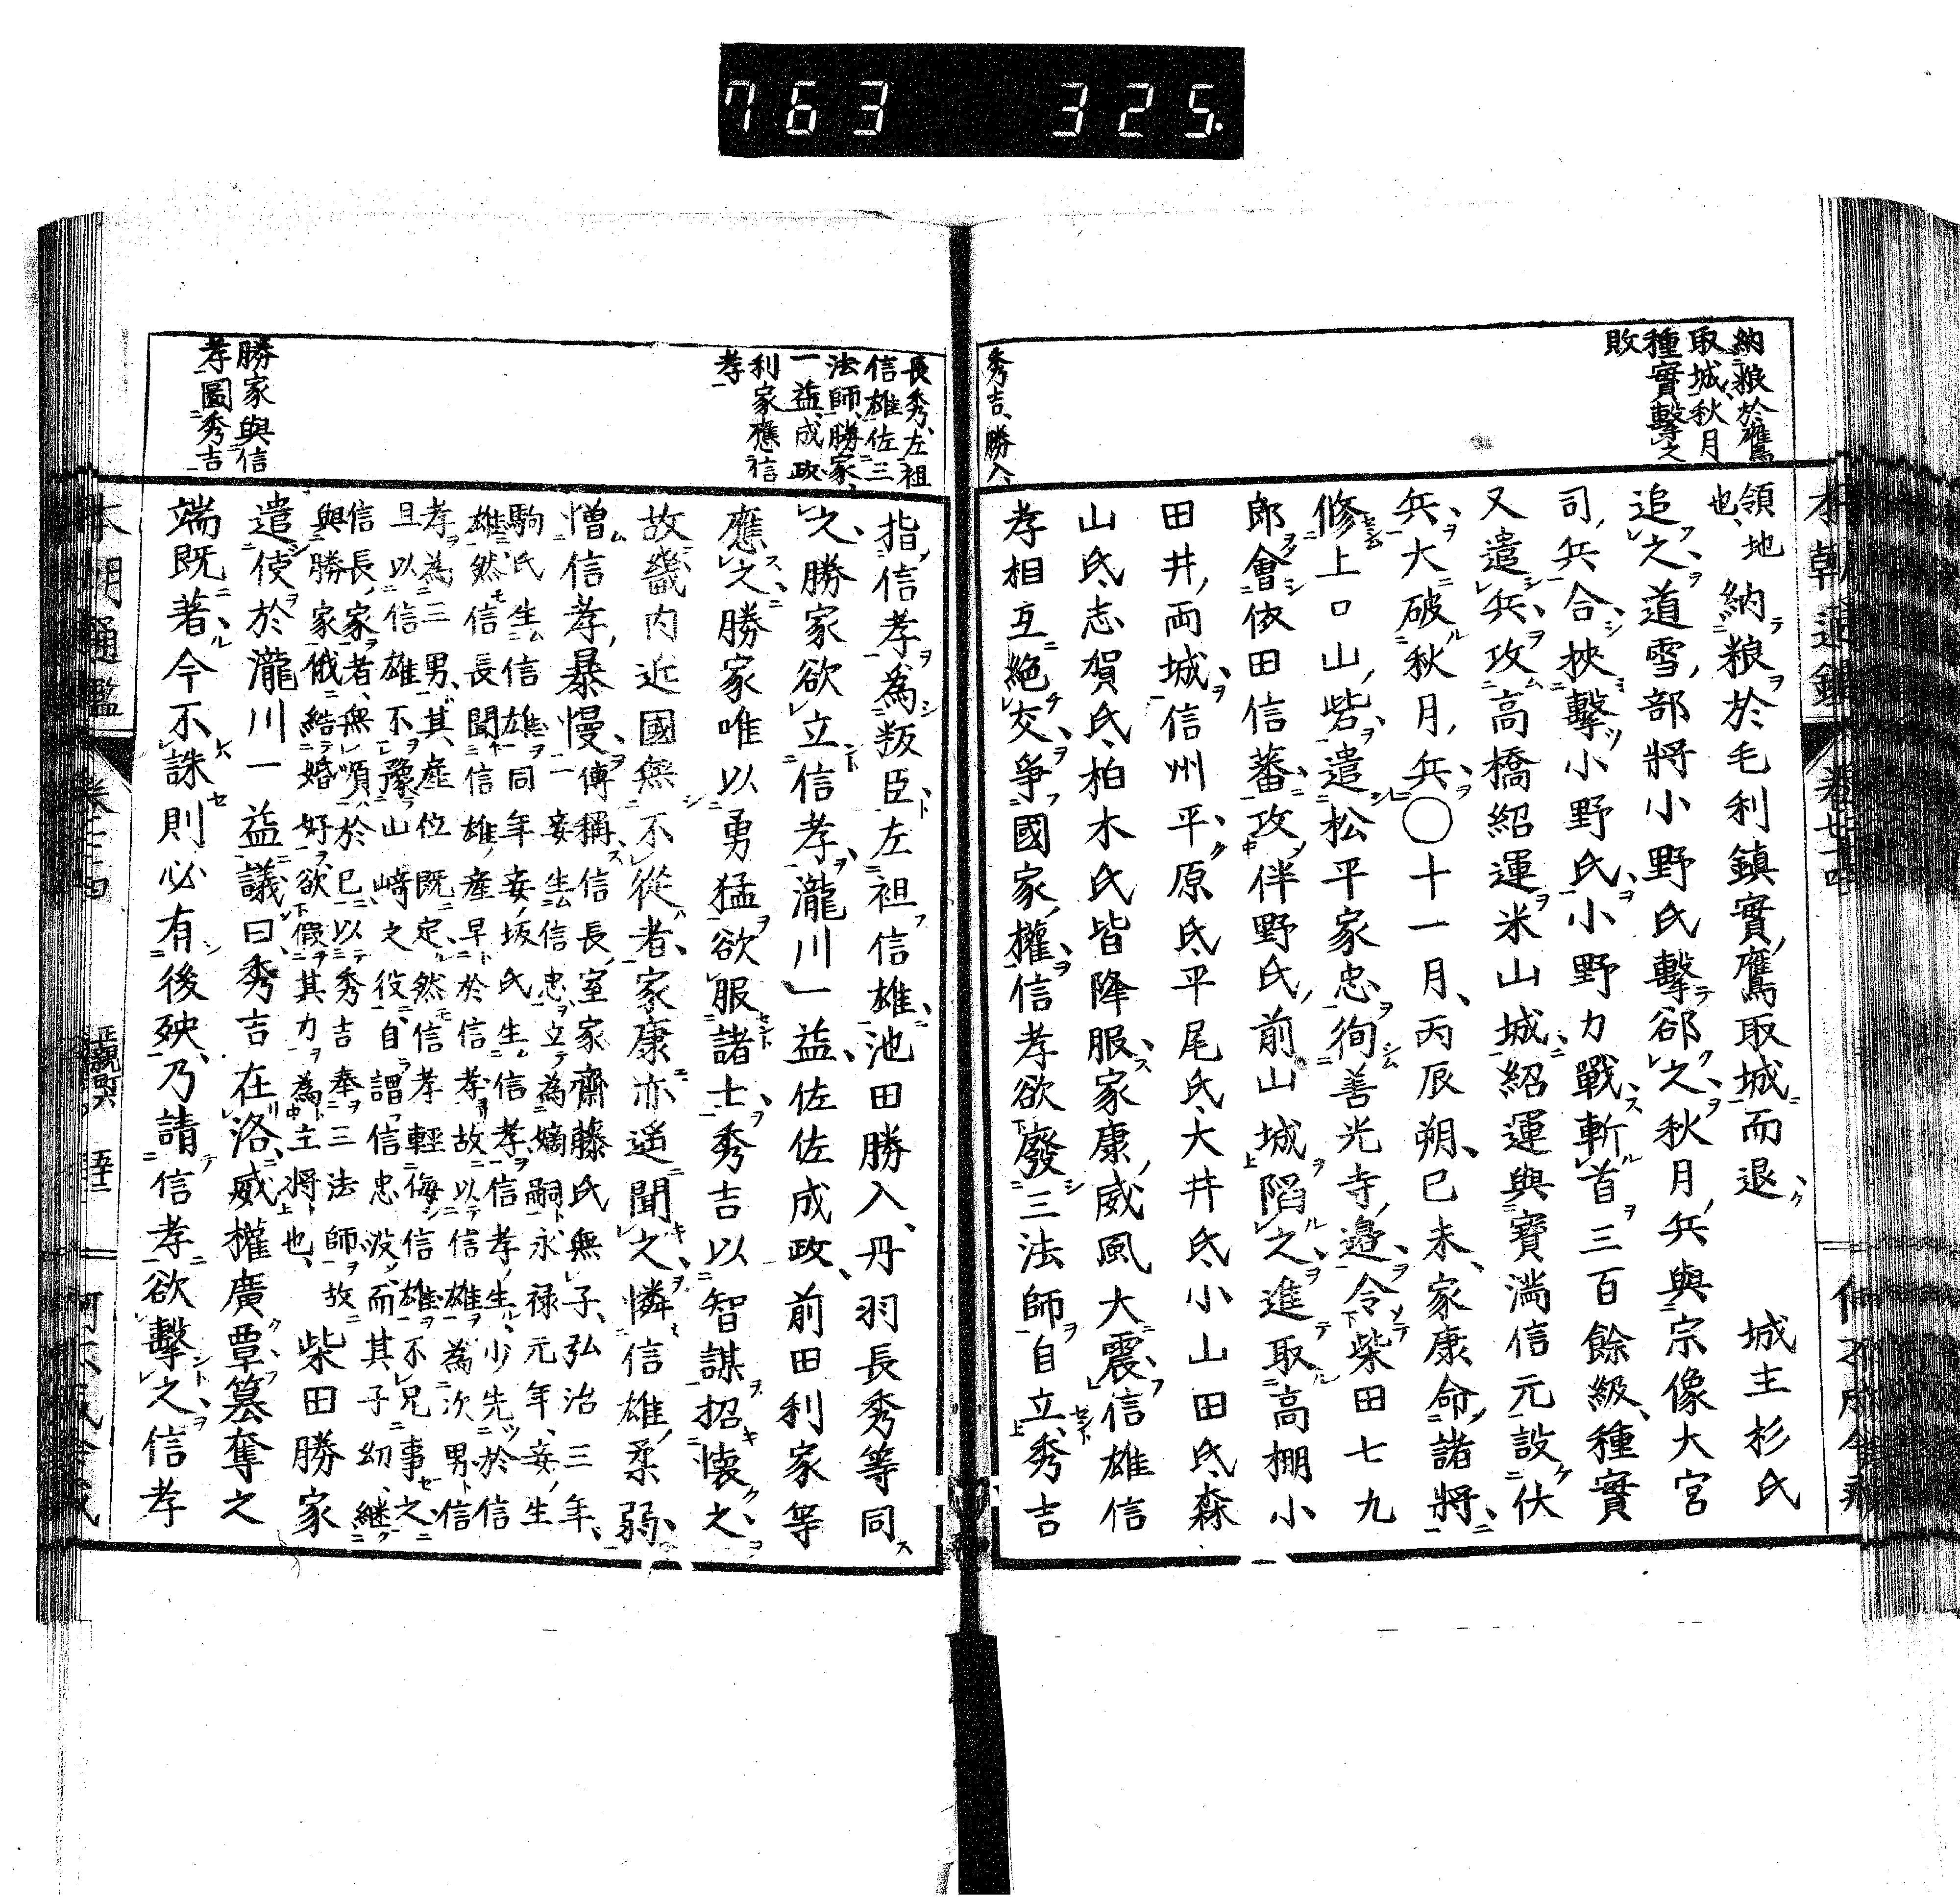 763 325.
納粮於鷹
取城秋月
種實擊之
敗
秀吉勝入
領地
也
納粮於毛利鎮實鷹取城而退 城主杉氏
追之道雪部將小野氏擊郤之秋月兵與宗像大宮
司兵合挾擊小野氏小野力戰斬首三百餘級種實
又遣兵攻高橋紹運米山城紹運與寶滿信元設伏
兵大破秋月兵〇十一月丙辰朔己未家康命諸將
修上口山砦遣松平家忠徇善光寺邉令柴田七九
郎會依田信蕃攻伴野氏前山城陷之進取高棚小
田井両城信州平原氏平尾氏大井氏小山田氏森
山氏志賀氏柏木氏皆降服家康威風大震信雄信
孝相互絶交爭國家權信孝欲廢三法師自立秀吉
長秀左袒
信雄佐三
法師勝家
一益成政
利家應信
孝
勝家與信
孝圖秀吉
指信孝爲叛臣左袒信雄池田勝入丹羽長秀等同
之勝家欲立信孝瀧川一益佐佐成政前田利家等
應之勝家唯以勇猛欲服諸士秀吉以智謀招懐之
故畿内近國無不從者家康亦遥聞之憐信雄柔弱
憎信孝暴慢
一傳稱信長室家齋藤氏無子弘治三年
妾生信忠立為嫡嗣永禄元年妾生
駒氏生信雄同年妾坂氏生信孝信孝生少先於信
雄然信長聞信雄産早於信孝故以信雄為次男信
孝為三男其産位既定然信孝輕侮信雄不兄事之
且以信雄不豫山﨑之役自謂信忠没而其子幼継
信長家者無順於已以秀吉奉三法師故
與勝家俄結婚好欲假其力為主將也
柴田勝家
遣使於瀧川一益議曰秀吉在洛威權廣覃簒奪之
端既著今不誅則必有後殃乃請信孝欲擊之信孝
本朝通鑑
正親町六 五十二